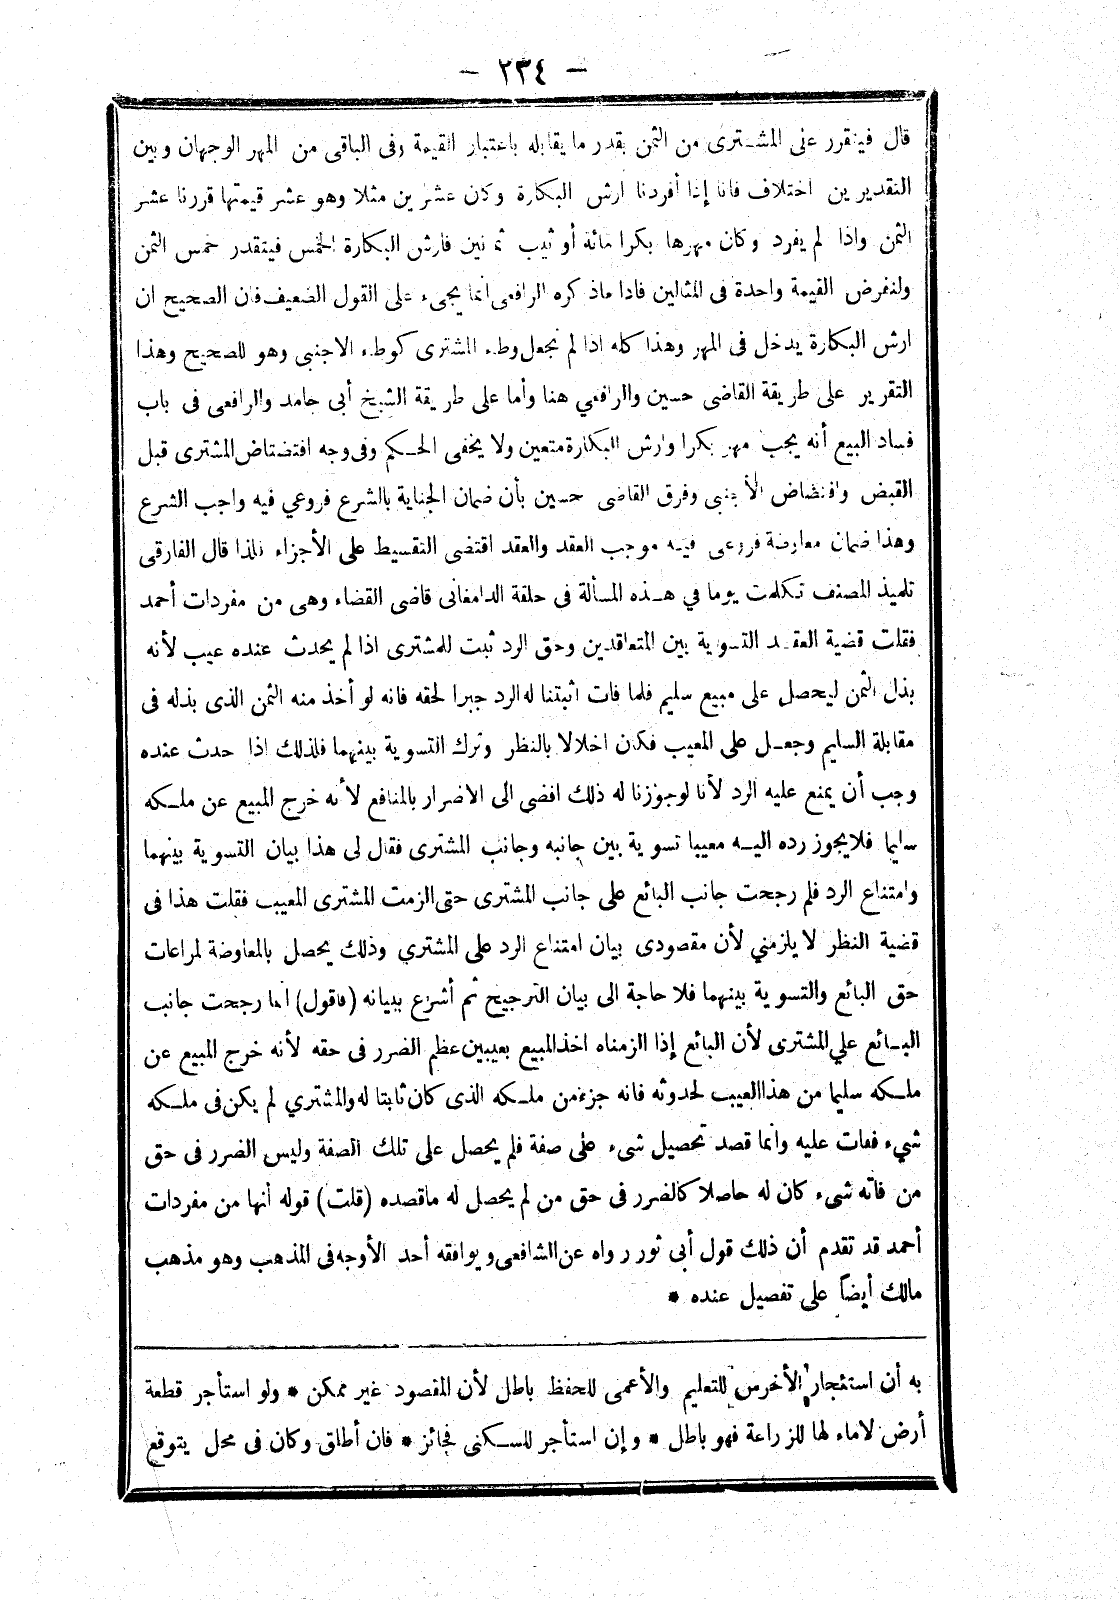 – ٢٣٤ –
قال فيتقرر على المشترى من الثمن بقدر ما يقابله باعتبار القيمة وفى الباقى من المهر الوجهان وبين
التقديرين اختلاف فانا إذا أفردنا ارش البكارة وكان عشرين مثلا وهو عشر قيمتها قررنا عشر
الثمن واذا لم يفرد وكان مهرها بكرا مائة أو ثيب ثمانين فارش البكارة الخمس فيتقدر خمس الثمن
ولنفرض القيمة واحدة فى المثالين فاذا ماذكره الرافعى انما يجىء على القول الضعيف فان الصحيح ان
ارش البكارة يدخل فى المهر وهذا كله اذا لم نجعل وطء المشترى كوطء الاجنبى وهو للصحيح وهذا
التقرير على طريقة القاضى حسين والرافعي هنا وأما على طريقة الشيخ أبى حامد والرافعى فى باب
فساد البيع أنه يجب مهر بكرا وارش البكارة متعين ولا يخفى الحكم وفى وجه افتضتاض المشترى قبل
القبض وافتضاض الأجنبى وفرق القاضى حسين بأن ضمان الجناية بالشرع فروعي فيه واجب الشرع
وهذا ضمان معاوضة فروعى فيه موجب العقد والعقد اقتضى التقسيط على الأجزاء فلذا قال الفارقى
تلميذ المصنف تكلمت يوما في هذه المسألة فى حلقة الدامغانى قاضى القضاء وهى من مفردات أحمد
فقلت قضية العقد التسوية بين المتعاقدين وحق الرد ثبت للمشترى اذا لم يحدث عنده عيب لأنه
بذل الثمن ليحصل على مبيع سليم فلما فات اثبتنا له الرد جبرا لحقه فانه لو أخذ منه الثمن الذى بذله فى
مقابلة السليم وجعل على المعيب فكان اخلالا بالنظر وترك التسوية بينهما فلذلك اذا حدث عنده
وجب أن يمنع عليه الرد لأنا لوجوزنا له ذلك افضى الى الاضرار بالمنافع لأنه خرج المبيع عن ملكه
سليما فلا يجوز رده اليه معيبا تسوية بين جانبه وجانب المشترى فقال لى هذا بيان التسوية بينهما
وامتناع الرد فلم رجحت جانب البائع على جانب المشترى حتى الزمت المشترى المعيب فقلت هذا فى
قضية النظر لا يلزمني لأن مقصودى بيان امتناع الرد على المشتري وذلك يحصل بالمعاوضة لمراعات
حق البائع والتسوية بينهما فلا حاجة الى بيان الترجيح ثم أشرع ببيانه (فاقول) انما رجحت جانب
البائع علي المشترى لأن البائع إذا الزمناه اخذ المبيع بعيبين عظم الضرر فى حقه لأنه خرج المبيع عن
ملكه سليما من هذا العيب لحدوثه فانه جزء من ملكه الذى كان ثابتا له والمشتري لم يكن فى ملكه
شيء ففات عليه وانما قصد تحصيل شىء على صفة فلم يحصل على تلك الصفة وليس الضرر فى حق
من فاته شىء كان له حاصلا كالضرر فى حق من لم يحصل له ماقصده (قلت) قوله أنها من مفردات
أحمد قد تقدم أن ذلك قول أبى ثور رواه عن الشافعى ويوافقه أحد الأوجه فى المذهب وهو مذهب
مالك أيضاً على تفصيل عنده *
به أن استئجار الأخرس للتعليم والأعمى للحفظ باطل لأن المقصود غير ممكن * ولو استأجر قطعة
أرض لاماء لها للزراعة فهو باطل * وإن استأجر للسكنى فجائز * فان أطلق وكان فى محل يتوقع